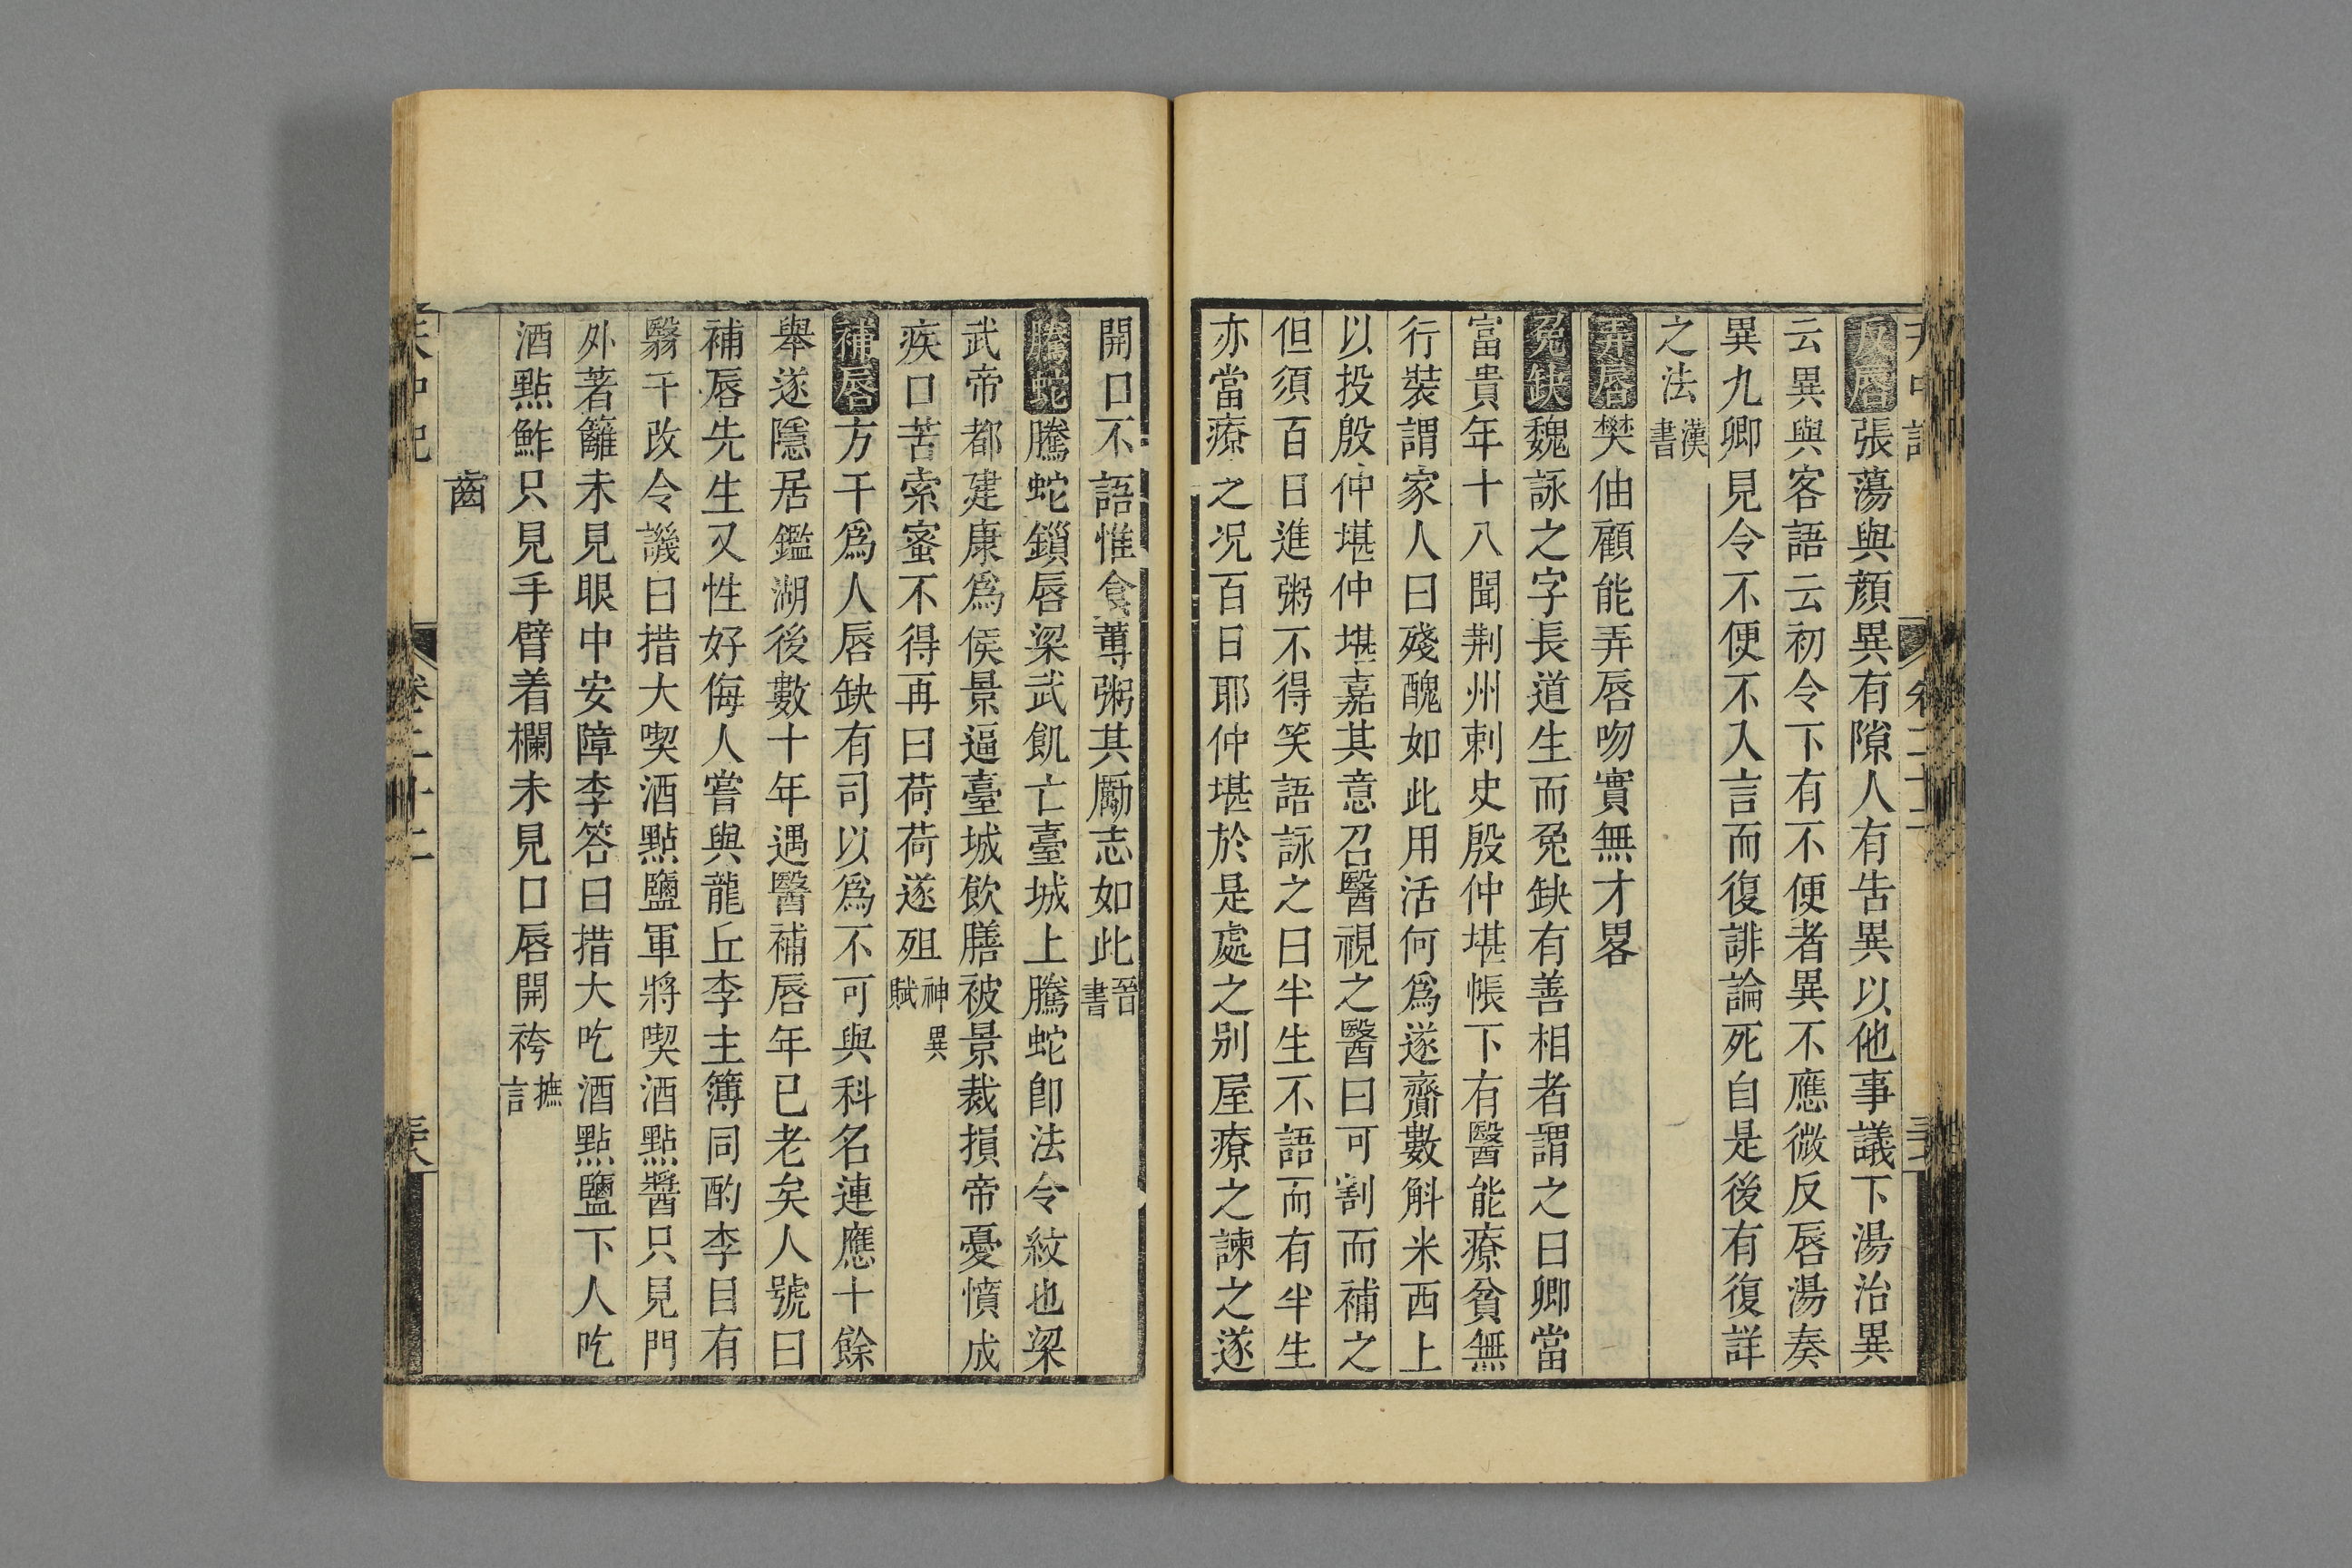 反唇張蕩與顔異有隙人有告異以他事議下湯治異
云異與客語云初令下有不便者異不應微反唇湯奏
異九卿見令不便不入言而復誹論死自是後有復詳
之法漢書
弄唇樊伷顧能弄唇吻實無才畧
兔缺魏詠之字長道生而兔缺有善相者謂之曰卿當
富貴年十八聞荆州刺史殷仲堪帳下有醫能療貧無
行裝謂家人曰殘醜如此用活何爲遂齎數斛米西上
以投殷仲堪仲堪嘉其意召醫視之醫曰可割而補之
但須百日進粥不得笑語詠之曰半生不語而有半生
亦當療之况百日耶仲堪於是處之别屋療之諫之遂
開口不語惟食薄粥其勵志如此晉書
騰蛇騰蛇鎖唇梁武飢亡臺城上騰蛇卽法令紋也梁
武帝都建康爲侯景逼臺城飲膳被景裁損帝憂憤成
疾口苦索蜜不得再曰荷荷遂殂神異賦
補唇方干爲人唇缺有司以爲不可與科名連應十餘
舉遂隱居鑑湖後數十年遇醫補唇年已老矣人號曰
補唇先生又性好侮人嘗與龍丘李主簿同酌李目有
翳干改令譏曰措大喫酒點鹽軍將喫酒點醬只見門
外著籬未見眼中安障李答曰措大吃酒點鹽下人吃
酒點鮓只見手臂着欄未見口唇開袴摭言
齒
天中記 卷二十二